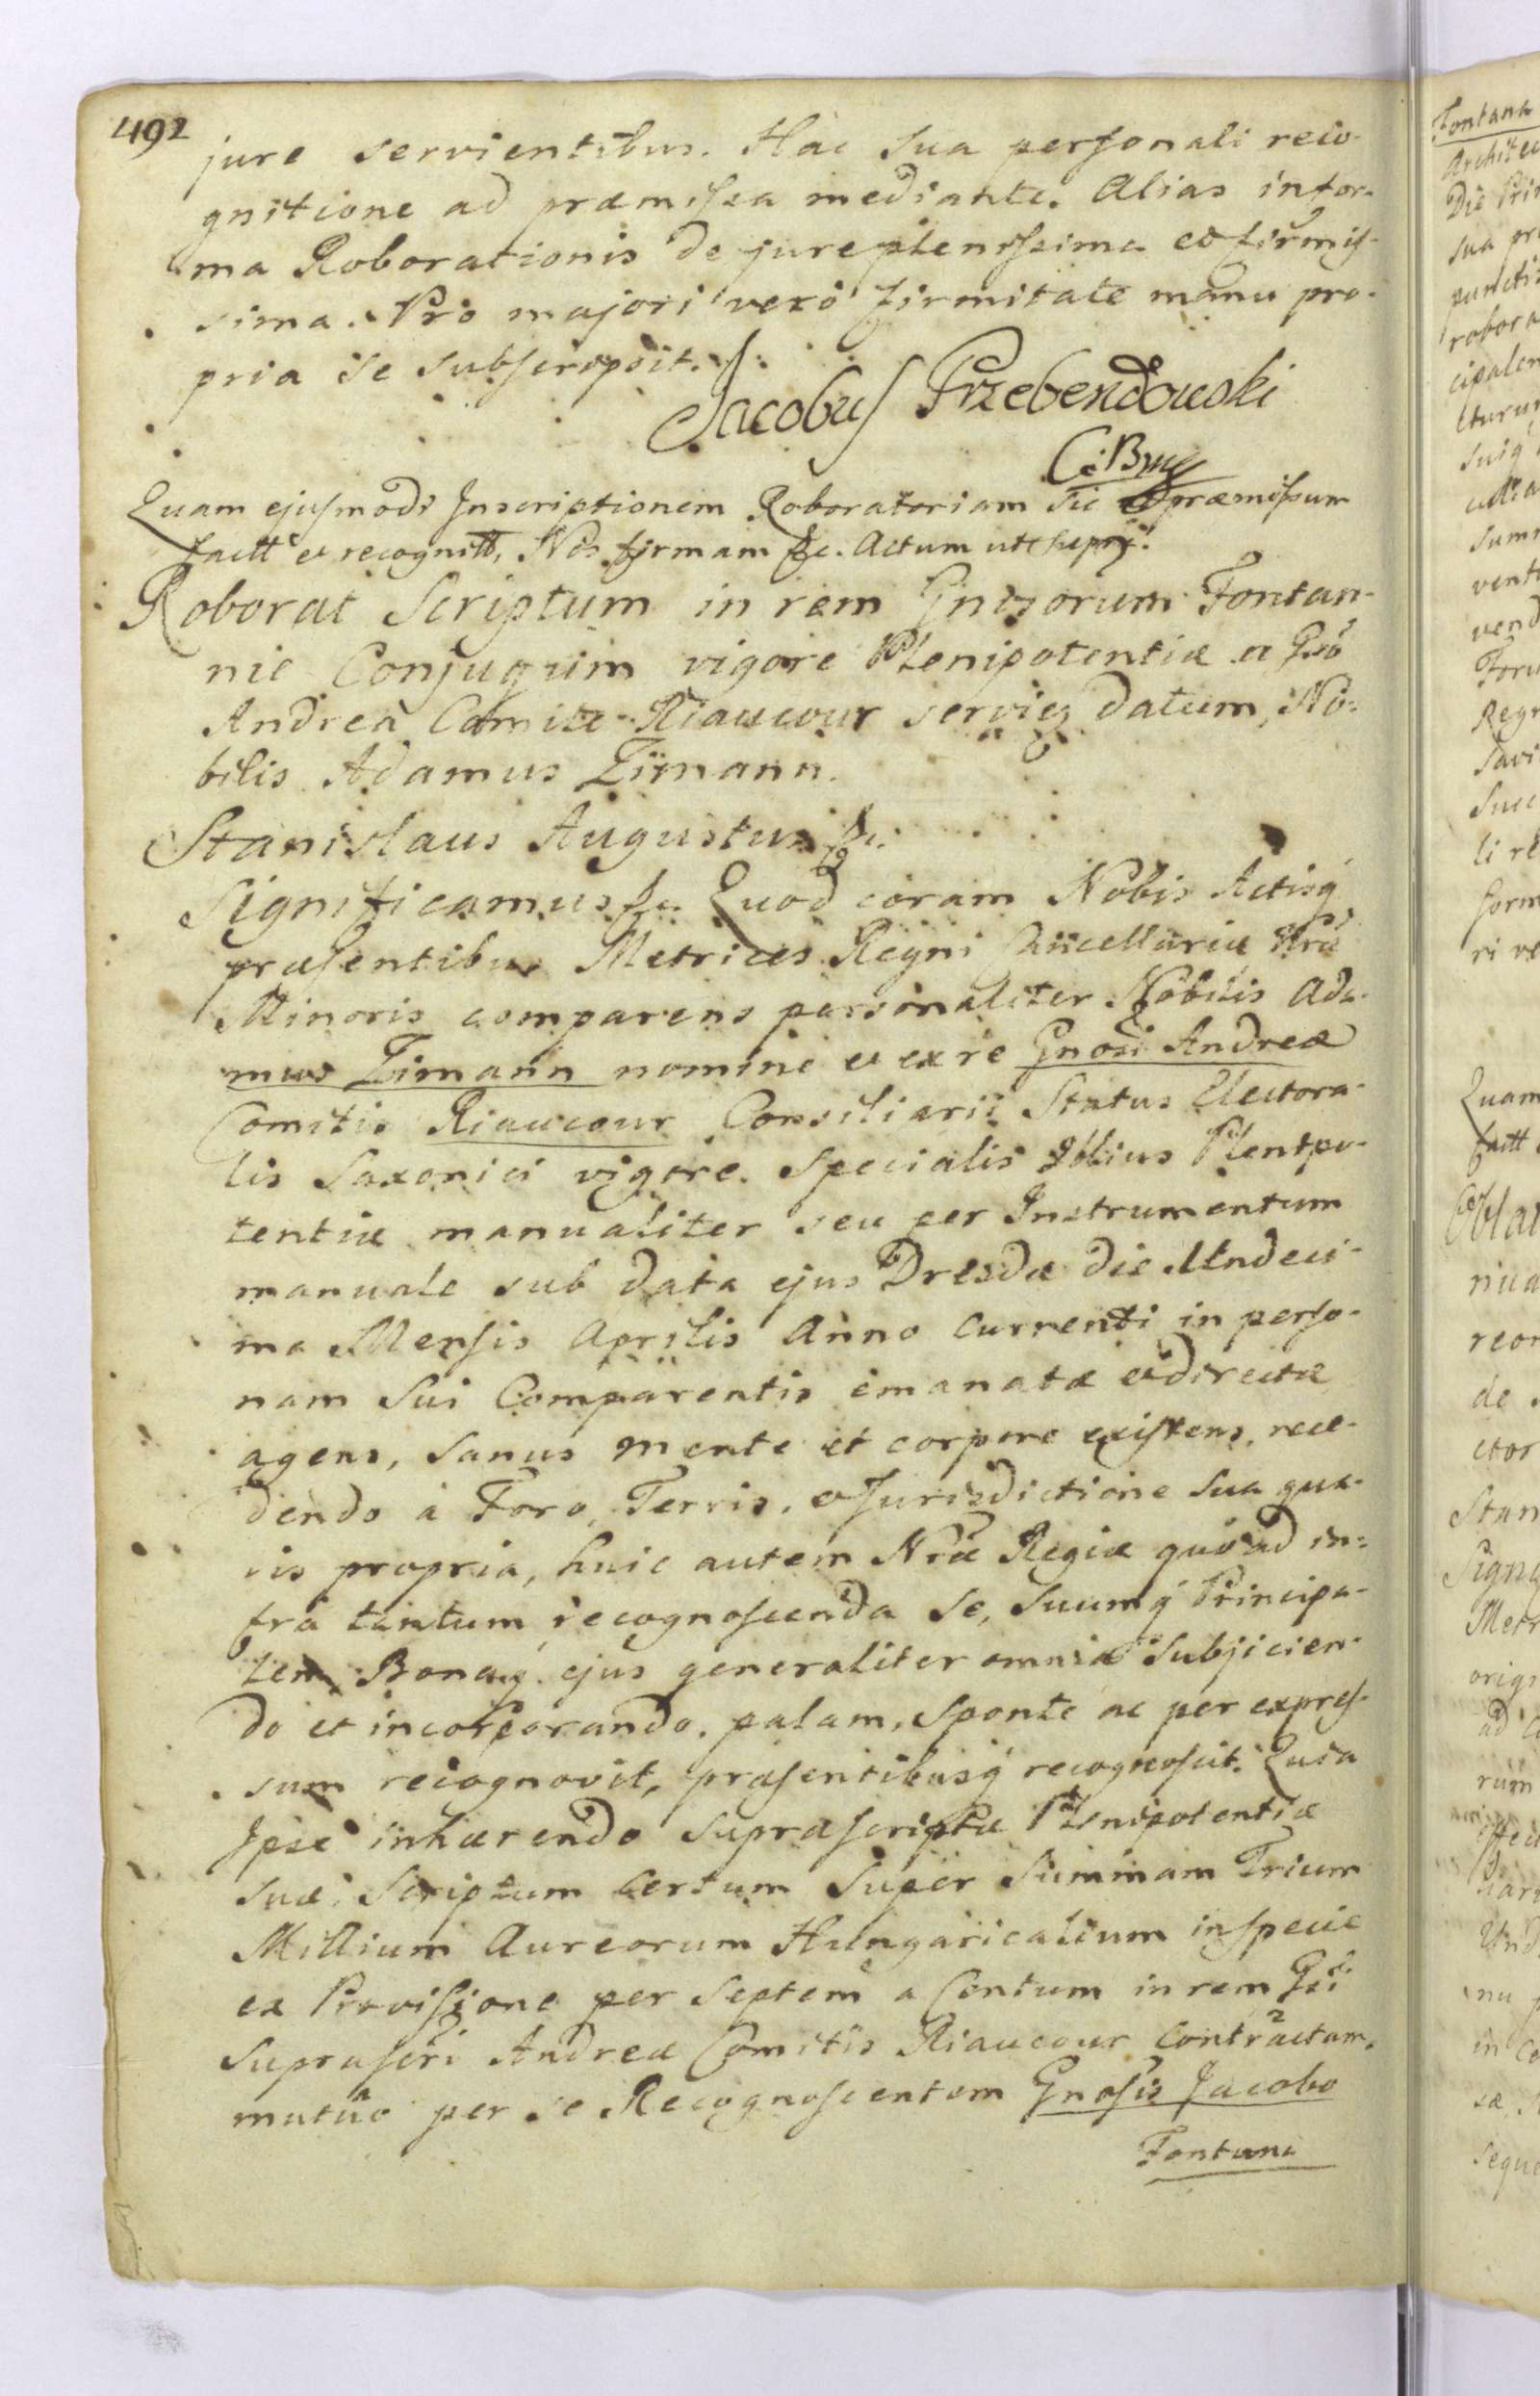 492
jure servientibus. Hac Sua personali reco-
gnitione ad præmissa mediante. Alias in for-
ma Roborationis de jure plenissima et firmis-
sima. Pro majori vero firmitate manu pro-
pria se subscripsit.
Jacobus Przebendowski
C: B mp
Quam ejusmodi Inscriptionem Roboratoriam sic præmissum
factt et recognitt, Nos firmam &c. Actum ut supra.
Roborat Scriptum in rem Gnosorum Fontan-
nie Conjugum vigore Plenipotentiæ a Gso
Andrea Comite Riaucour servien datum, No-
bilis Adamus Zimann.
Stanislaus Augustus &c.
Significamus &c. Quod coram Nobis Actisq
præsentibus Metrices Regni Cancellariæ Nræ
Minoris comparens personaliter Nobilis Ada-
mus Zimann nomine et ex re Gnosi Andreæ
Comitis Riaucour Consiliarii Status Electora-
lis Saxonici vigore Specialis Illius Plenipo-
tentiæ manualiter seu per Instrumentum
manuale sub data ejus Dresdæ die Undeci-
ma Mensis Aprilis Anno Currenti in perso-
nam Sui Comparentis emanatæ et directæ
agens, Sanus mente et corpore existens, rece-
dendo a Foro, Terris, et Jurisdictione Sua qua-
vis propria, huic autem Nræ Regiæ quoad in-
fra tantum recognoscenda Se, Suumq Principa-
lem Bonaq ejus generaliter omnia Subjicien-
do et incorporando, palam, Sponte ac per expres-
sum recognovit, præsentibusq recognoscit. Quia
Ipse inhærendo Suprascriptæ Plenipotentiæ
Suæ, Scriptum Certum Super Summam Trium
Millium Aureorum Hungaricalium in Specie
ex Provisione per Septem a Centum in rem Gsi
Suprascri Andreæ Comitis Riaucour Contractam,
mutuo per se Recognoscentem Gnosis Jacobo
Fontana
Fontana
Quam
factt
Stan
Metr
de